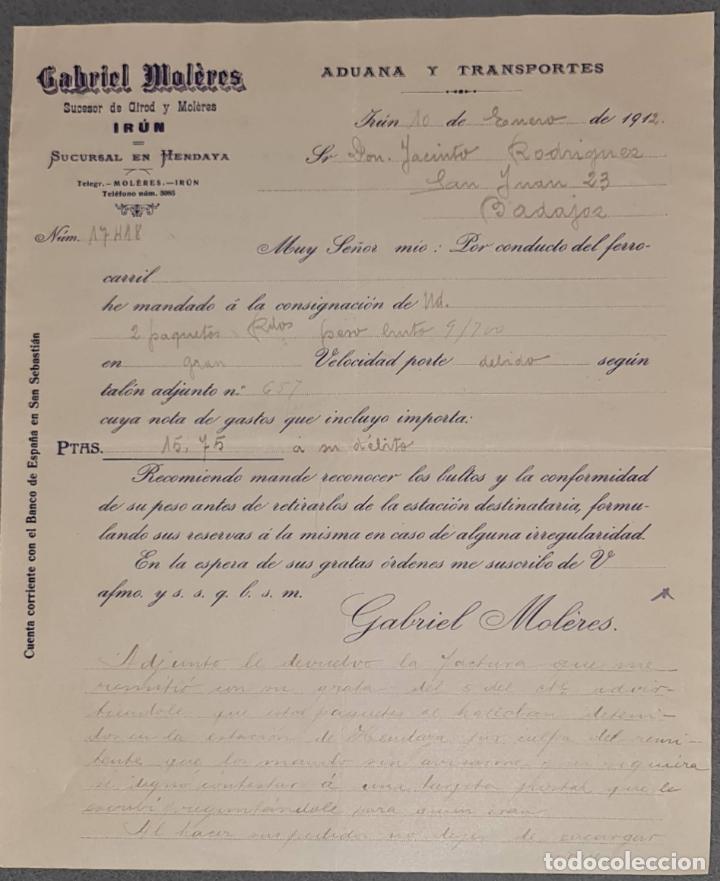 Gabriel Molères
Sucesor de Girod y Molères
IRÚN
SUCURSAL EN HENDAYA
Telegr.—MOLÈRES.—IRÚN
Teléfono núm. 3085
ADUANA Y TRANSPORTES
Irún 10 de Enero de 1912.
Sr Don. Jacinto Rodriguez
San Juan 23
Badajoz
Núm. 17418
Muy Señor mio: Por conducto del ferro-
carril
he mandado á la consignación de Ud.
2 paquetes Rdos peso bruto 9/700
en gran Velocidad porte debido según
talón adjunto n.º 657
cuya nota de gastos que incluyo importa:
PTAS. 15,75 á su débito
Recomiendo mande reconocer los bultos y la conformidad
de su peso antes de retirarlos de la estación destinataria, formu-
lando sus reservas á la misma en caso de alguna irregularidad.
En la espera de sus gratas órdenes me suscribo de V
afmo. y s. s. q. b. s. m.
Gabriel Molères.
Cuenta corriente con el Banco de España en San Sebastián
Adjunto le devuelvo la factura que me
remitió con su grata del 5 del cte advir-
tiendole que estos paquetes se hallaban deteni-
dos en la estación de Hendaya por culpa del remi-
tente que los mandó sin avisarme y ni siquiera
se dignó contestar á una tarjeta postal que le
escribí preguntándole para quien eran.
Al hacer sus pedidos no deje de encargar
todocoleccion